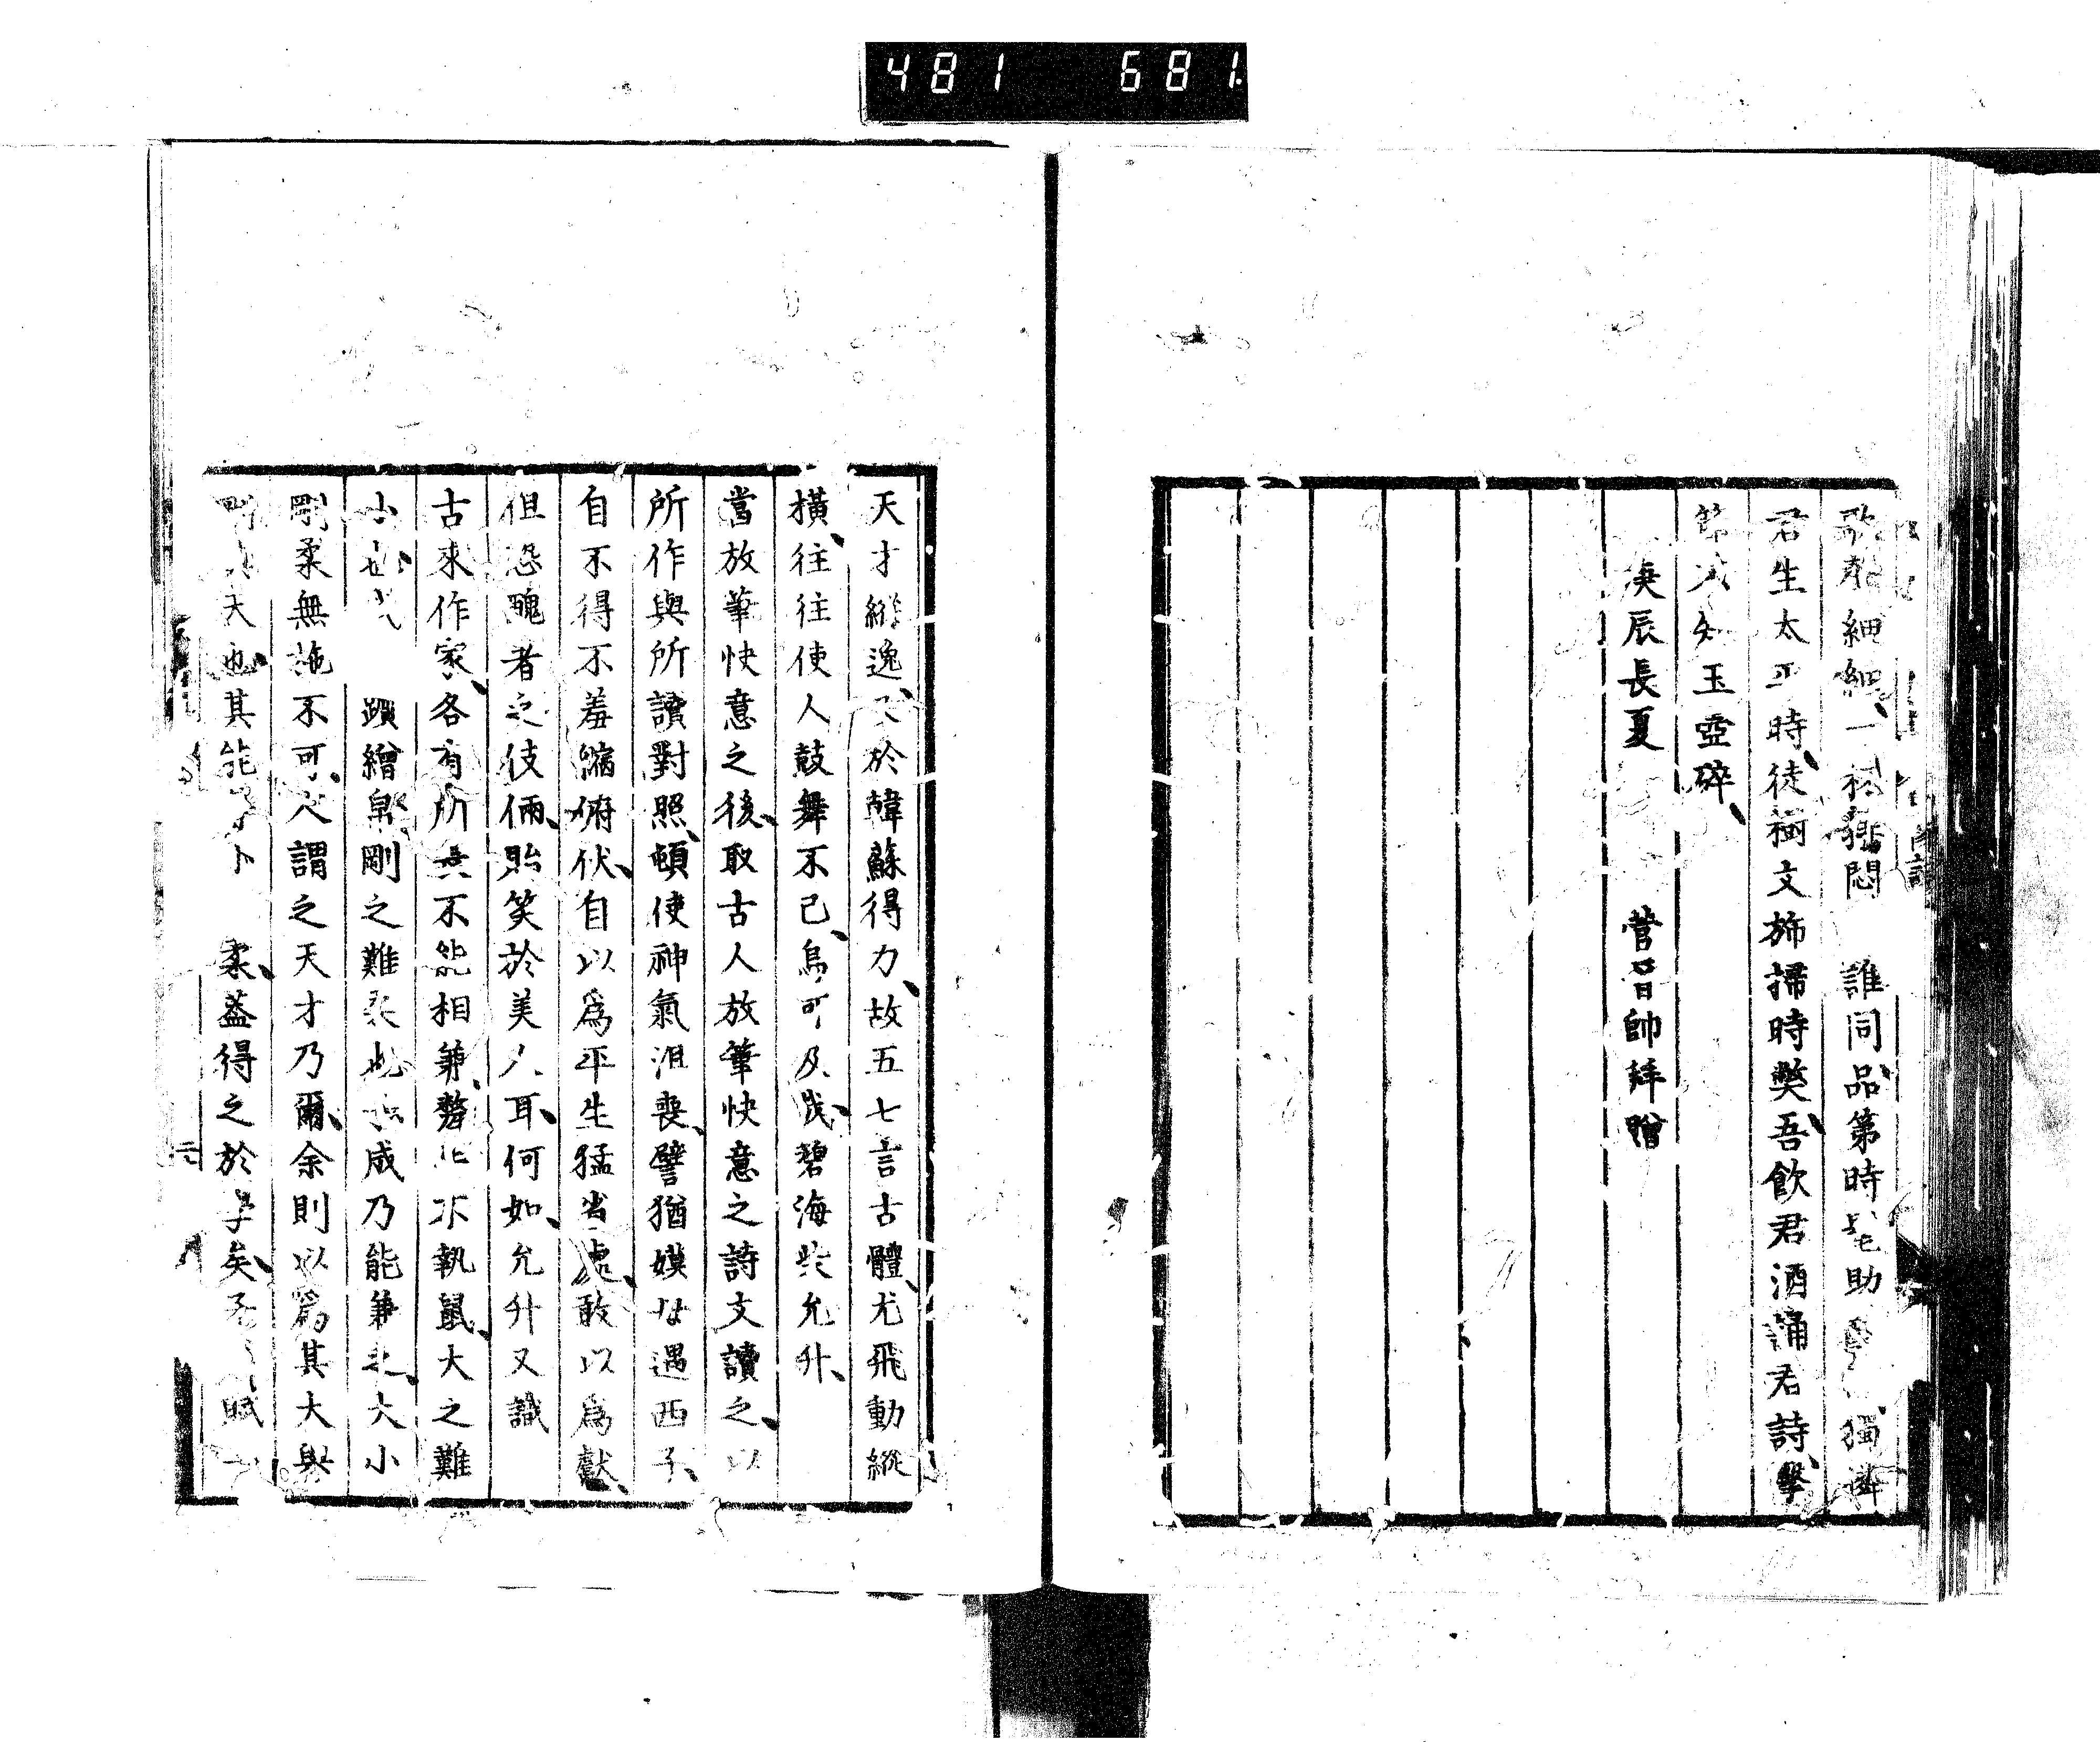 481 681
歌 細細、一 悶 誰同品第時髦助 獨憐
君生太平時、徒樹文旆掃時獘、吾飲君酒誦君詩、擊
節 知玉壺碎、
庚辰長夏 菅晉帥拜贈
天才縱逸、 於韓蘇得力、故五七言古體、尤飛動縱
橫、往往使人鼓舞不已、烏可及哉、碧海 允升、
當放筆快意之後、取古人放筆快意之詩文讀之、以
所作與所讀對照、頓使神氣沮喪、譬猶嫫母遇西子、
自不得不羞縮俯伏、自以爲平生猛省處、敢以爲獻、
但恐醜者之伎倆、貽笑於美人耳、何如、允升又識
古來作家、各有所 不能相兼、 不執鼠、大之難
小也、 繒帛、剛之難柔也 咸乃能兼之、大小
剛柔無施不可、人謂之天才乃爾、余則以爲其大與
剛 天也、其能 柔、蓋得之於學矣、 賦